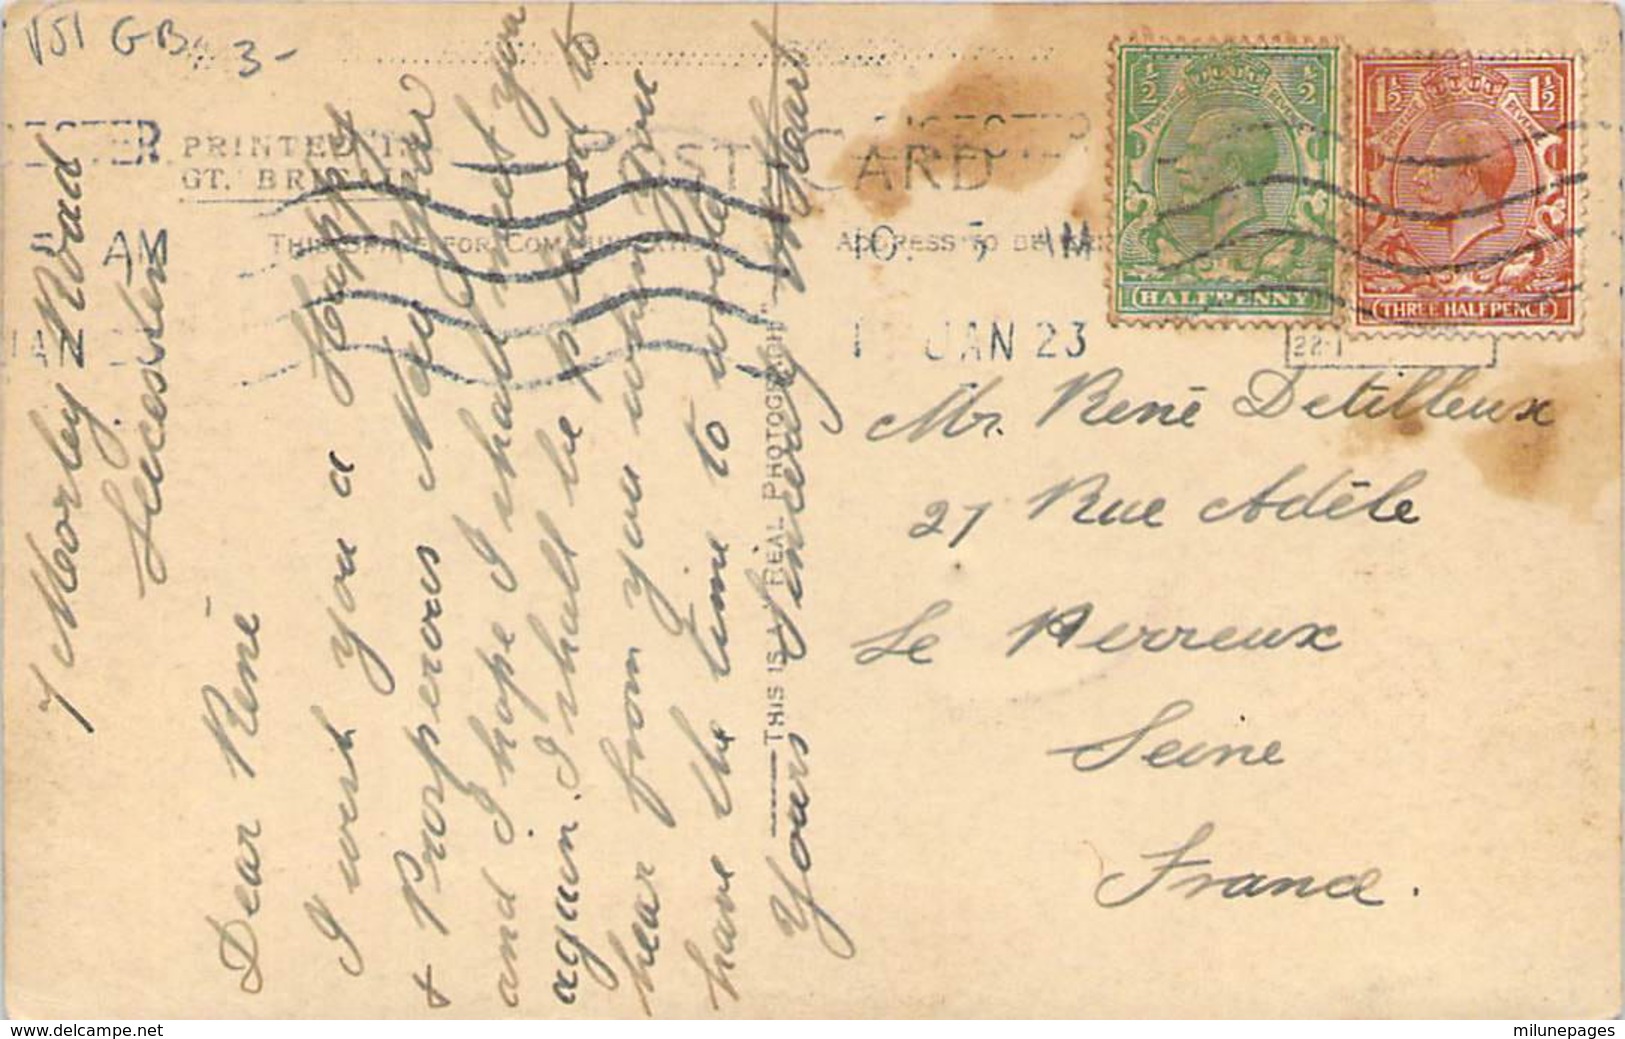 V51 GB 3-
PRINTED IN
GT. BRITAIN
POST CARD
THIS SPACE FOR COMMUNICATION
ADDRESS TO BE
AM
10. AM
1 JAN 23
HALFPENNY
½ ½
POSTAGE REVENUE
1½ 1½
THREE HALFPENCE
22-1
7 Morley Road
Leicester
Dear René
I wish you a Happy
& Prosperous New Year
and I hope I shall meet you
again. I shall be pleased to
hear from you when you
have the time to
Yours Sincerely
THIS IS A "REAL PHOTOGRAPH"
Mr. René Detilleux
27 Rue Adèle
Le Perreux
Seine
France.
www.delcampe.net
milunepages